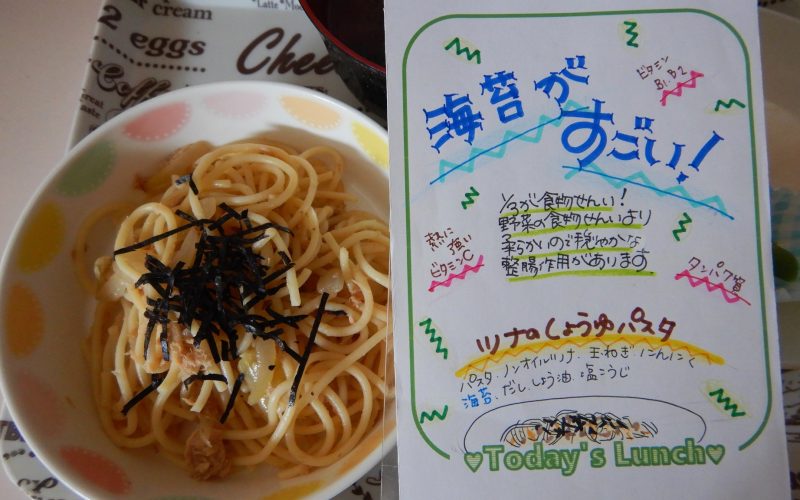 cream
Latte
2 eggs
Chee
Coffee
海苔が
すごい!
ビタミン
B1.B2
1/3が食物せんい!
野菜の食物せんいより
柔らかいので穏やかな
整腸作用があります
熱に
強い
ビタミンC
タンパク質
ツナのしょうゆパスタ
パスタ.ノンオイルツナ.玉ねぎ.にんにく
海苔.だし.しょう油.塩こうじ
♥Today's Lunch♥